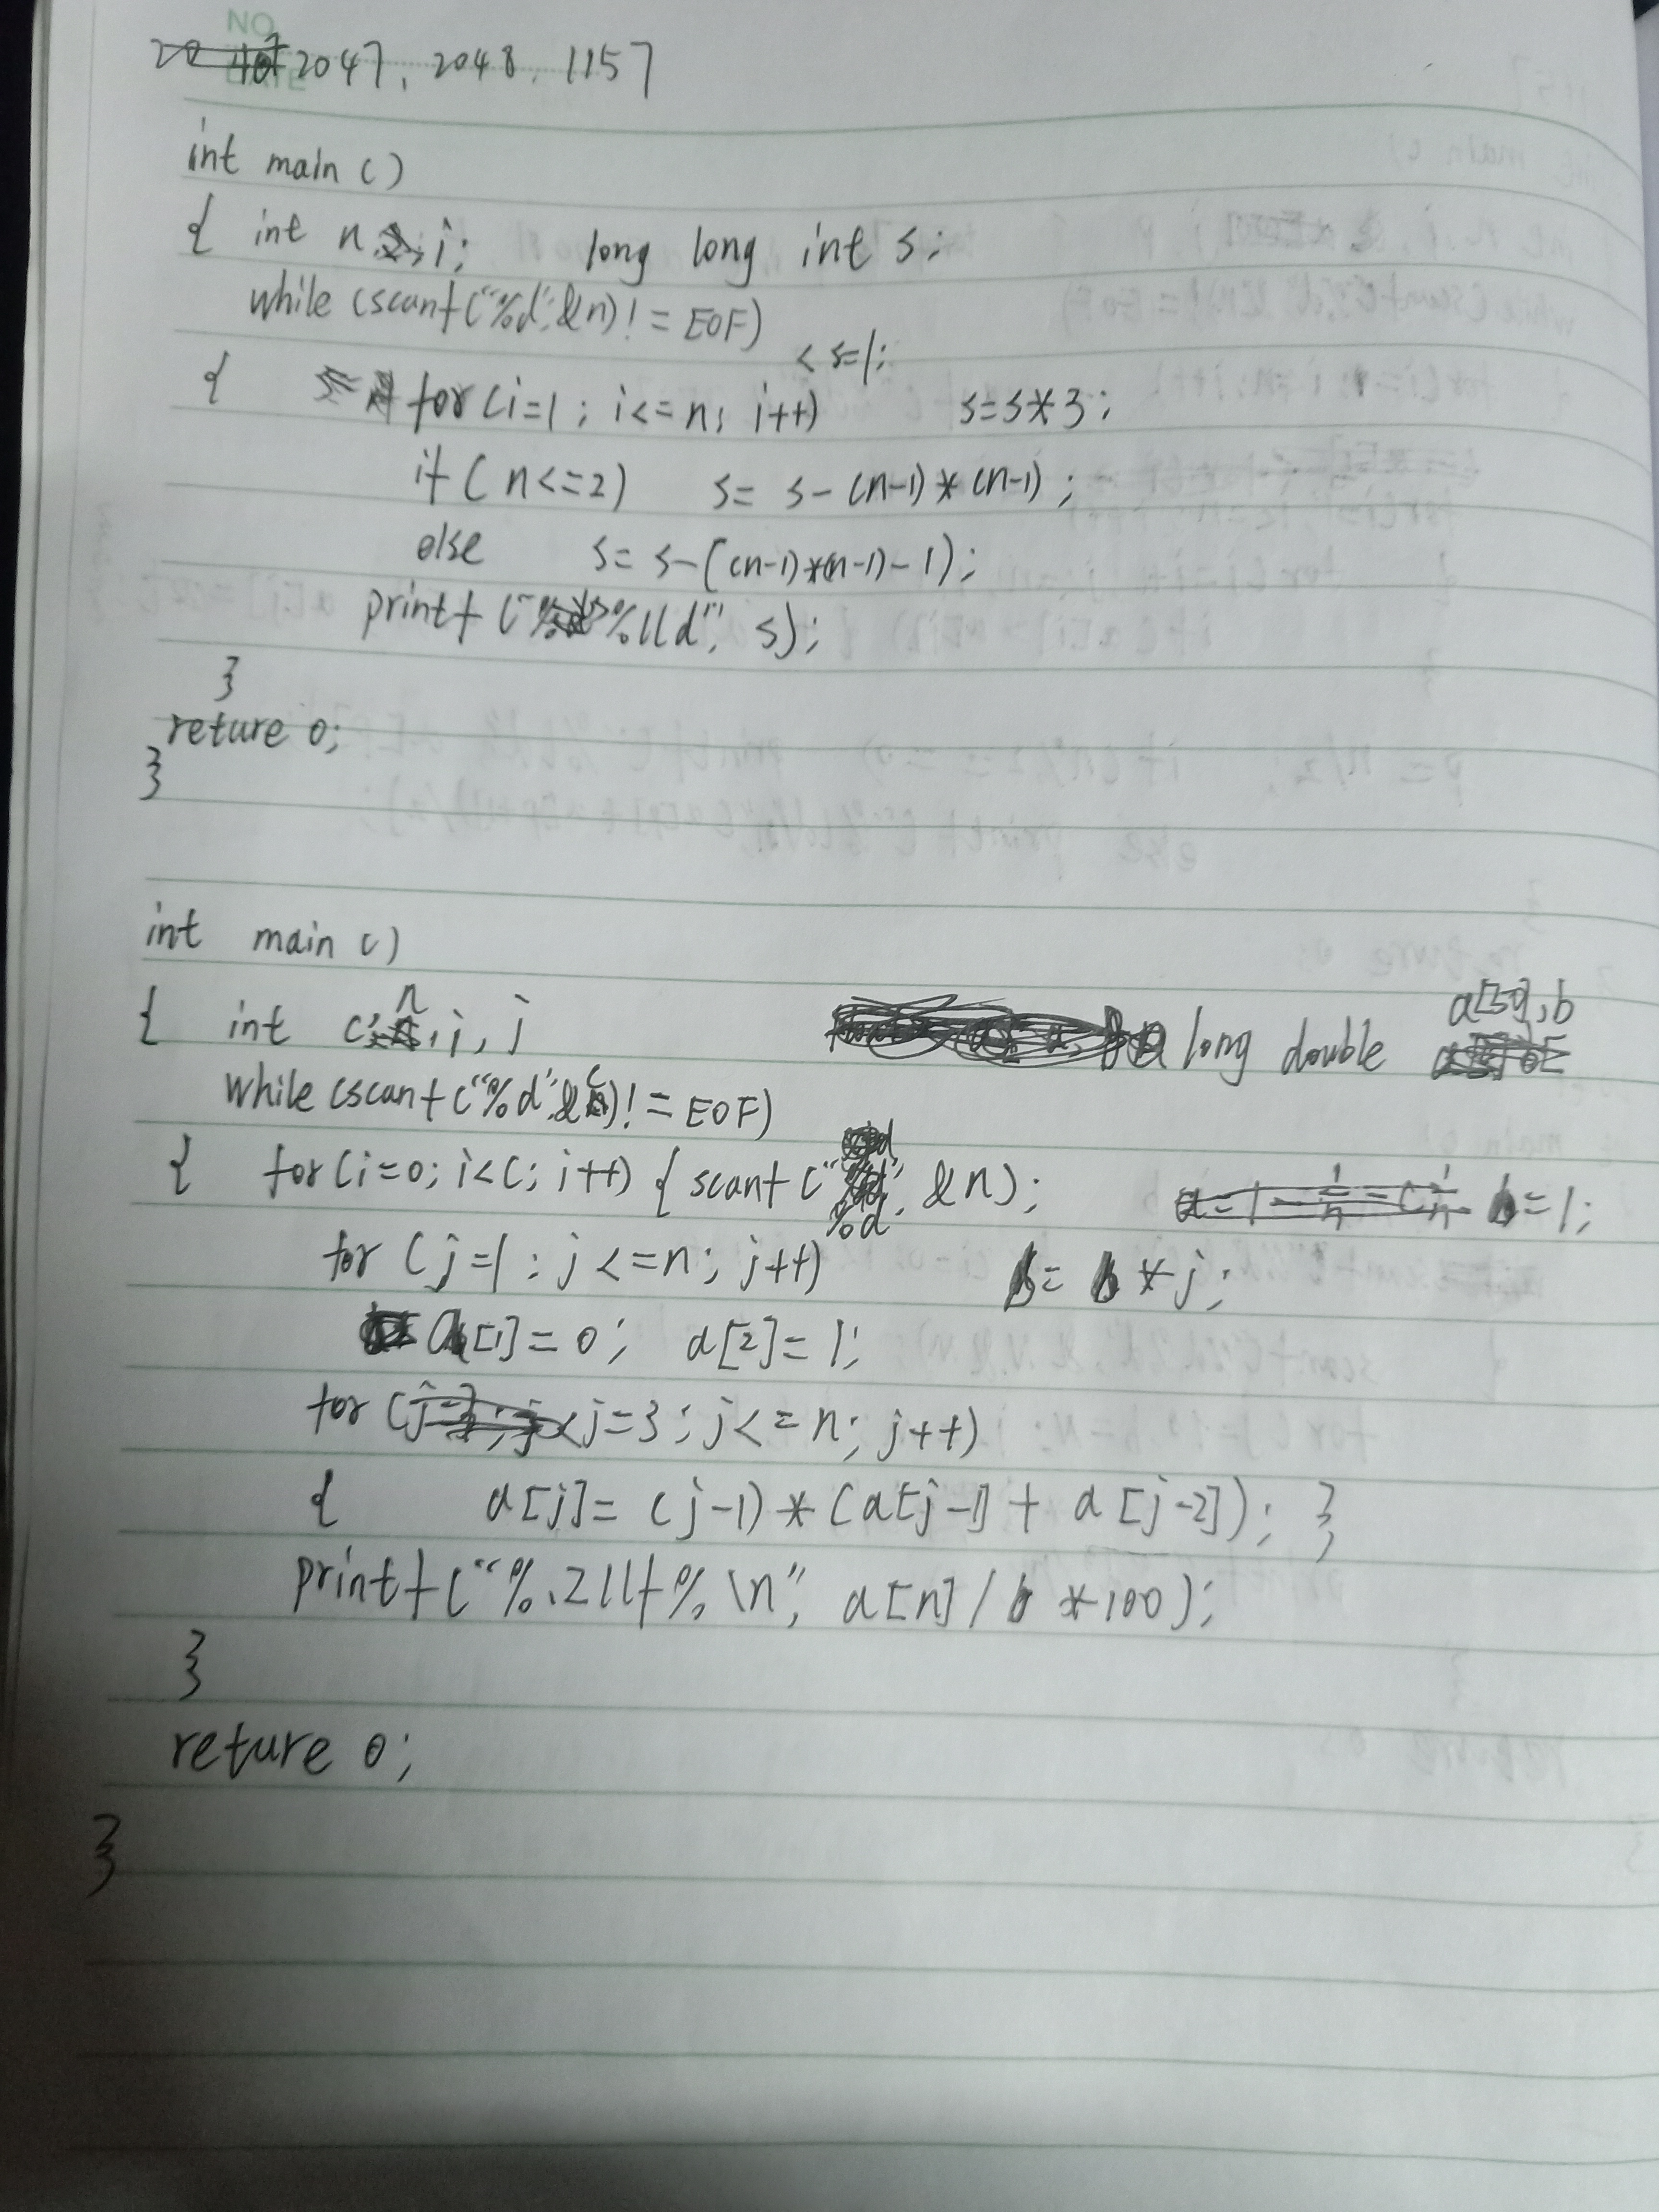 NO
DATE
2047, 2048, 1157
int main ()
{ int n, i; long long int s;
while (scanf("%d",&n)!=EOF)
{ for(i=1; i<=n; i++) < s=1; s=s*3;
if( n<=2) s= s-(n-1)*(n-1);
else s= s-((n-1)*(n-1)-1);
printf("%lld", s);
}
reture 0;
}
int main ()
{ int c, n, i, j long double a[50], b
while (scanf("%d",&c)!=EOF)
{ for(i=0; i<c; i++) { scanf("%d", &n); b=1;
for (j=1; j<=n; j++) b= b*j;
a[1]=0; a[2]=1;
for (j=3; j<=n; j++)
{ a[j]= (j-1)*(a[j-1]+ a[j-2]); }
printf("%.2llf%\n", a[n]/b *100);
}
reture 0;
}